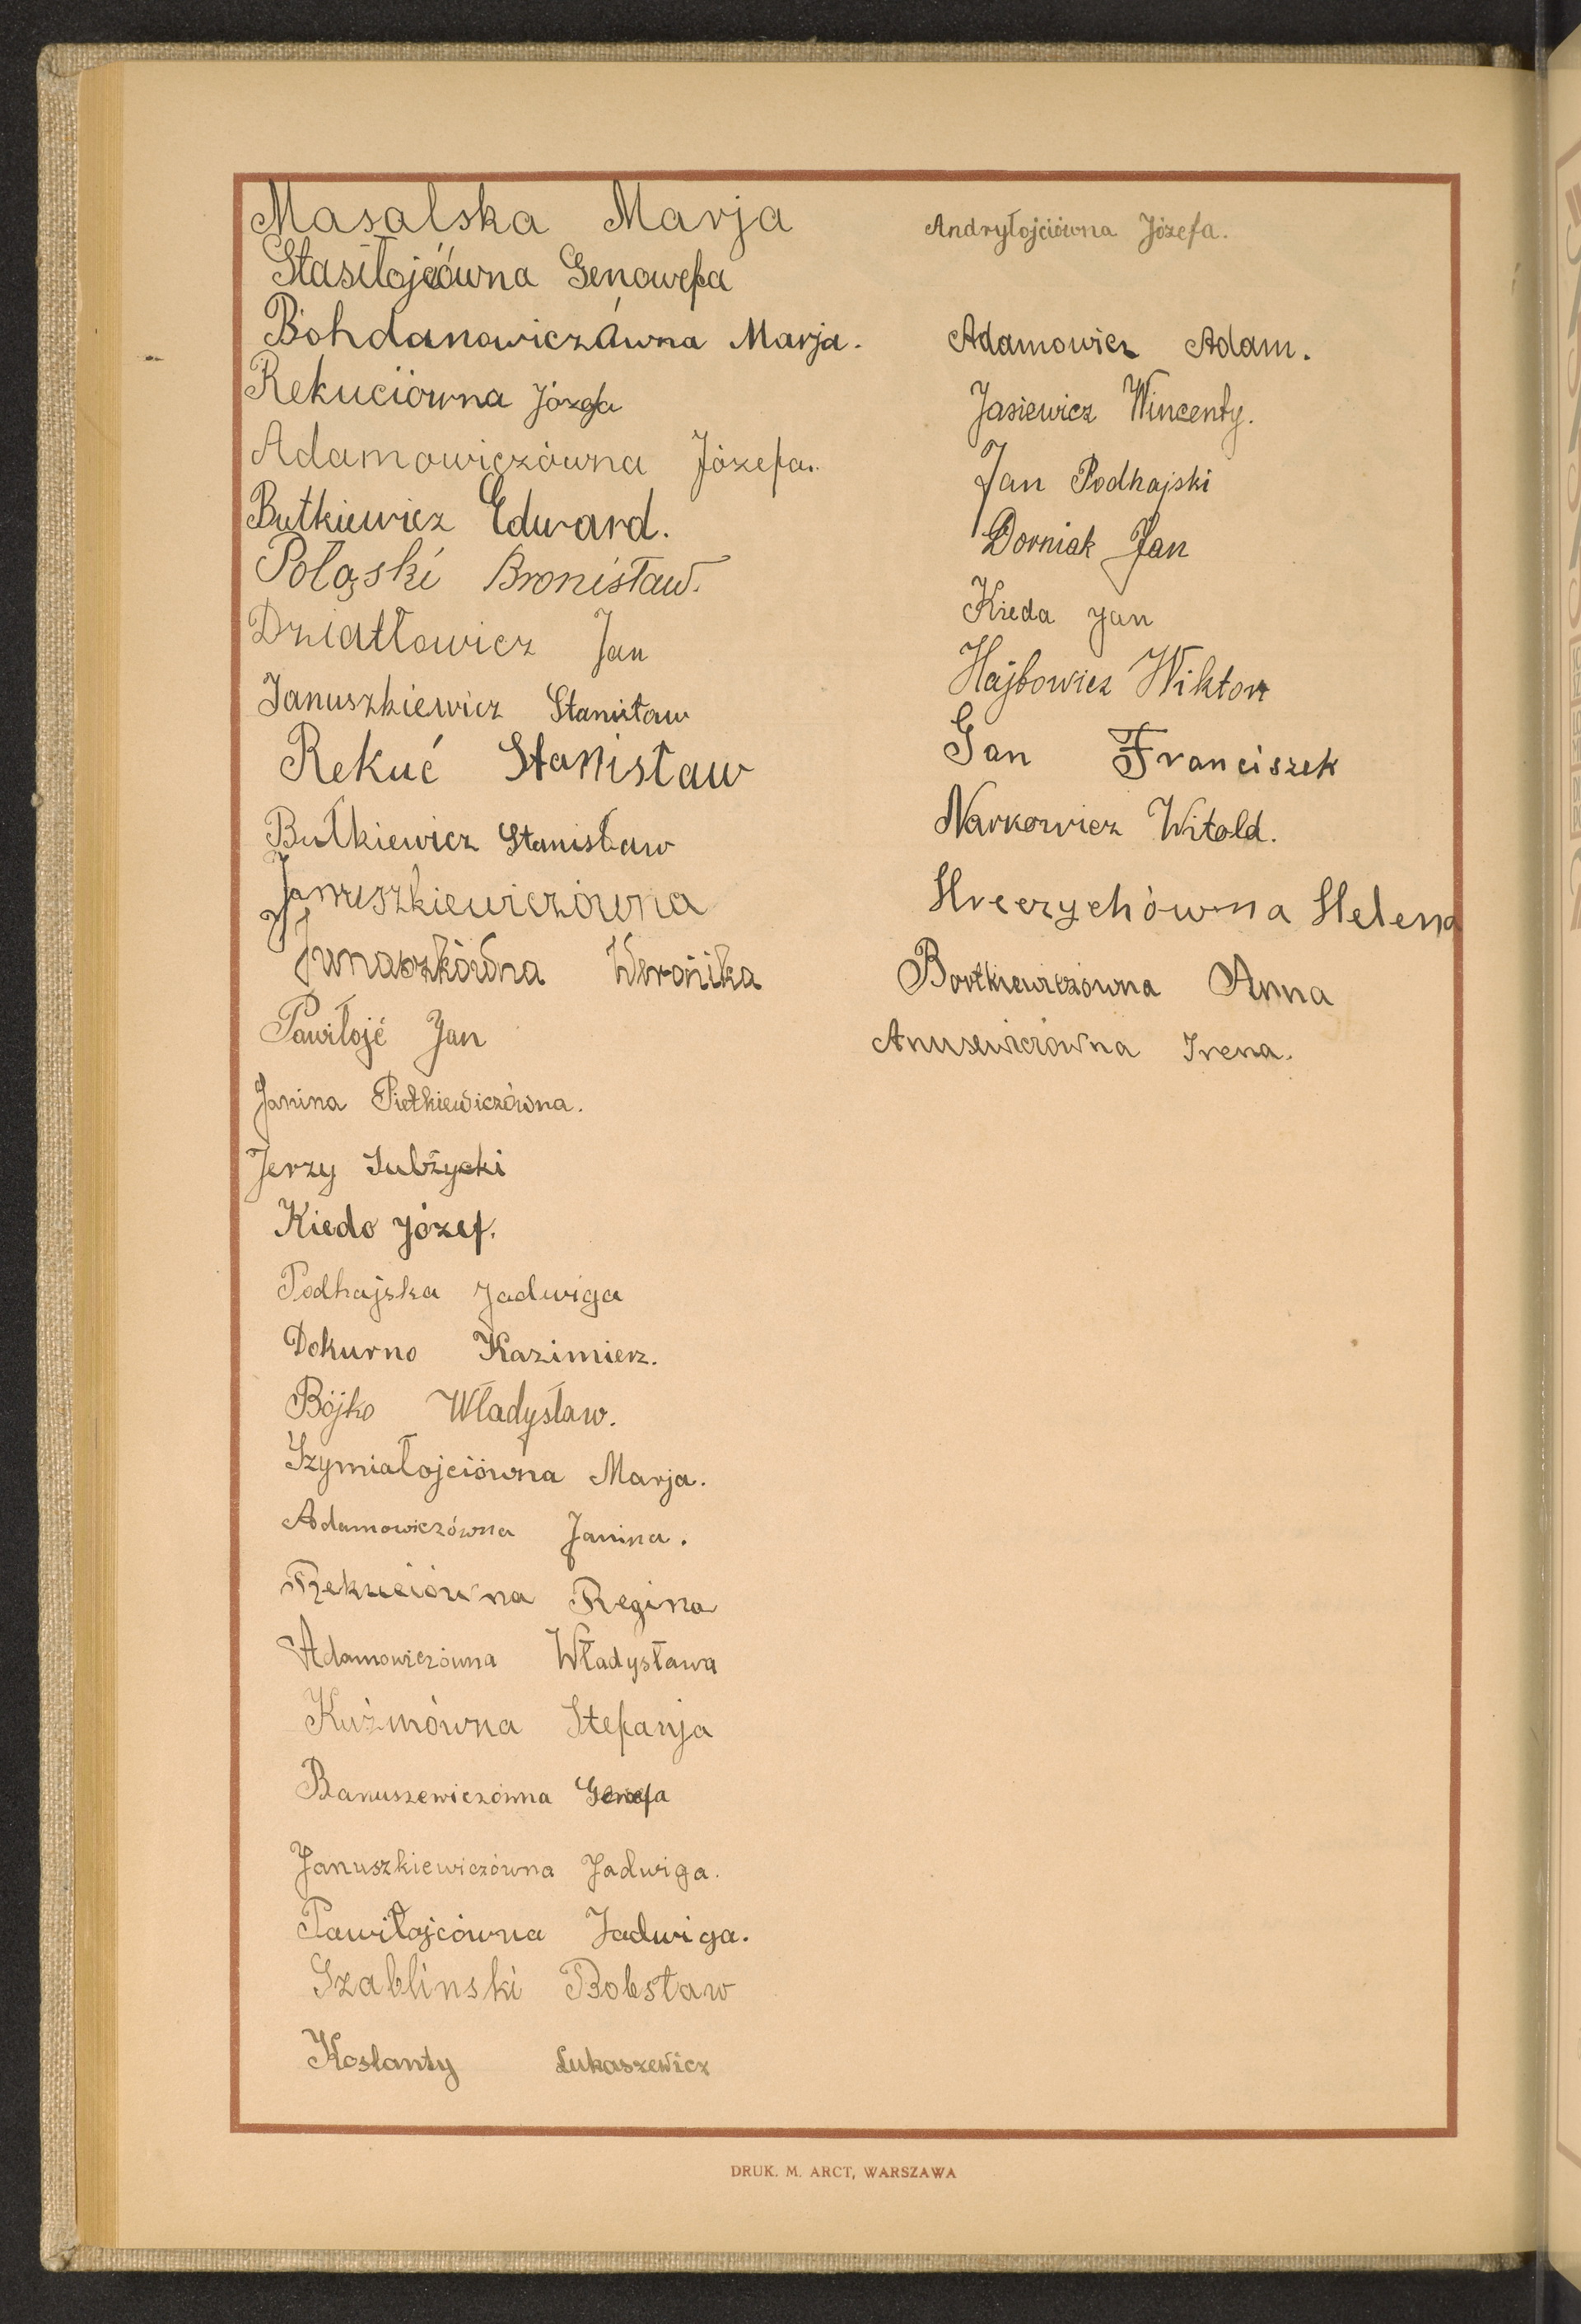 Masalska Marja
Stasiłojcówna Genowefa
Bohdanowiczówna Marja.
Rekuciówna Józefa
Adamowiczówna Józefa.
Butkiewicz Edward.
Poląski Bronisław.
Dziatłowicz Jan
Januszkiewicz Stanisław
Rekuć Stanisław
Butkiewicz Stanisław
Januszkiewiczówna
Junaszkówna Weronika
Pawiłojć Jan
Janina Pietkiewiczówna.
Jerzy Subżycki
Kiedo Józef.
Podhajska Jadwiga
Dokurno Kazimierz.
Bójko Władysław.
Szymiałojciówna Marja.
Adamowiczówna Janina.
Rekuciówna Regina
Adamowiczówna Władysława
Kuźmówna Stefanja
Banuszewiczówna Genefa
Januszkiewiczówna Jadwiga.
Pawiłojcówna Jadwiga.
Szablinski Bolesław
Kostanty Łukaszewicz
Andryłojciówna Józefa.
Adamowicz Adam.
Jasiewicz Wincenty.
Jan Podhajski
Dorniak Jan
Kieda Jan
Hajbowicz Wiktor
Gan Franciszek
Narkowicz Witold.
Hreczychówna Helena
Bortkiewiczówna Anna
Anusewiczówna Irena.
DRUK. M. ARCT, WARSZAWA